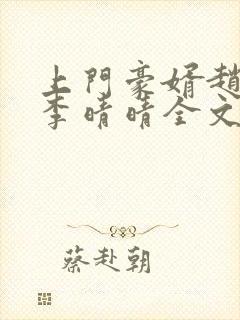 上門豪婿趙
李晴晴全文
蔡赴朝